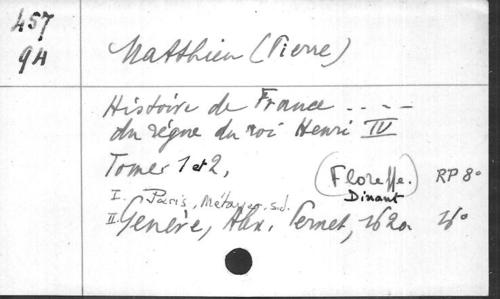 457
94
Matthieu (Pierre)
Histoire de France ....
du règne du roi Henri IV
Tomes 1 et 2,
(Floreffe.) RP 8°
Dinant
I. Paris, Métayer, s.d.
II. Genève, Alex. Pernet, 1620. 16°